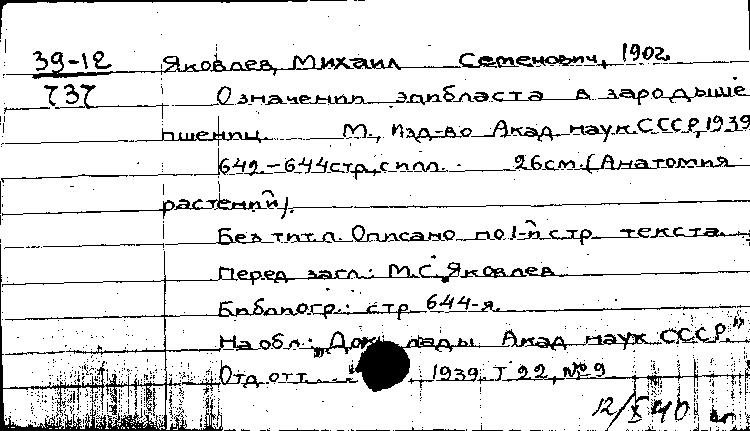 39-12
737
Яковлев, Михаил Семенович, 1902
О значении эпибласта в зародыше
пшениц. М., Изд-во Акад. наук СССР, 1939
642.-644 стр. с илл. 26 см. (Анатомия
растений).
Без тит. л. Описано по 1-й стр. текста.
Перед загл.: М.С. Яковлев
Библиогр.: стр 644-я.
На обл.: „Доклады Акад. наук СССР."
Отд. отт. 1939. Т 22, № 9
12/X 40